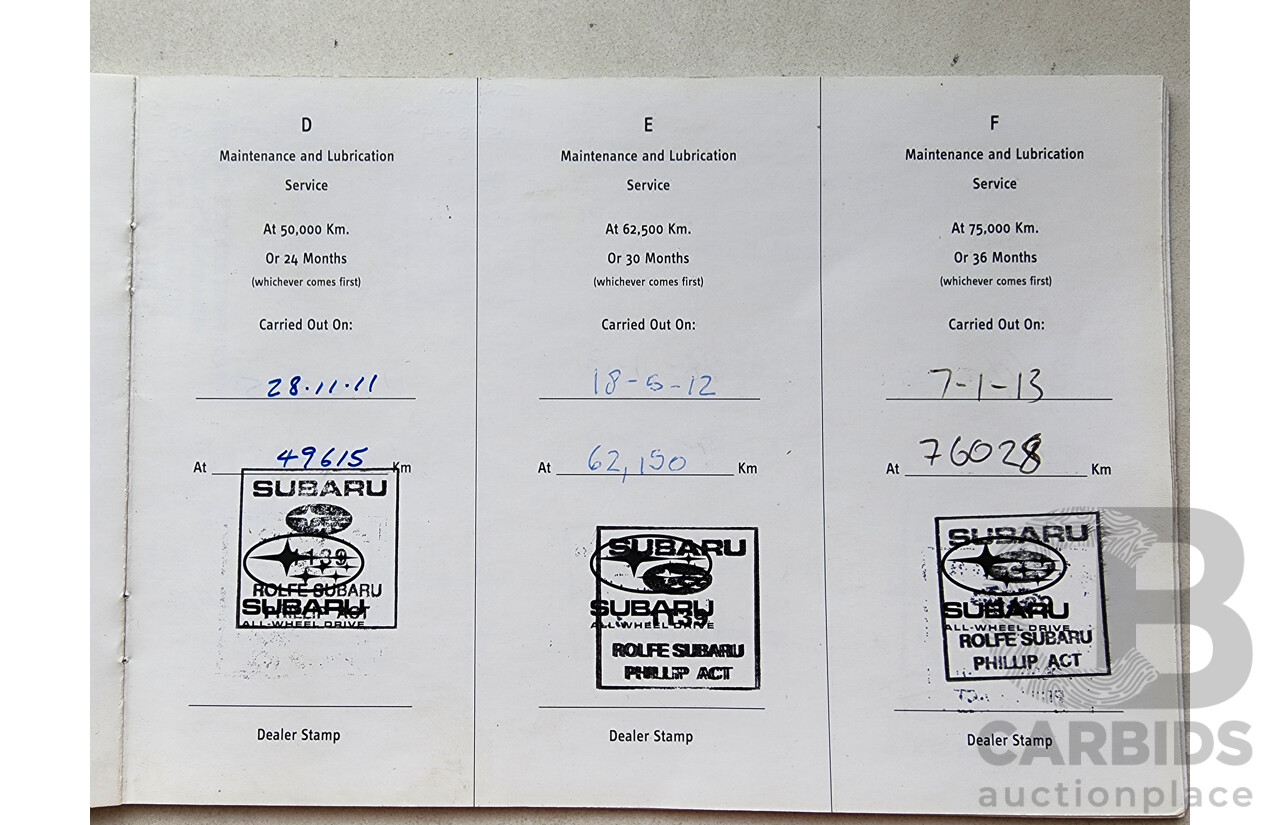 D
Maintenance and Lubrication
Service
At 50,000 Km.
Or 24 Months
(whichever comes first)
Carried Out On:
28.11.11
At 49615 Km
SUBARU
1139
ROLFE SUBARU
SUBARU
PHILLIP ACT
ALL-WHEEL DRIVE
Dealer Stamp
E
Maintenance and Lubrication
Service
At 62,500 Km.
Or 30 Months
(whichever comes first)
Carried Out On:
18-5-12
At 62,150 Km
SUBARU
SUBARU
1139
ALL-WHEEL DRIVE
ROLFE SUBARU
PHILLIP ACT
Dealer Stamp
F
Maintenance and Lubrication
Service
At 75,000 Km.
Or 36 Months
(whichever comes first)
Carried Out On:
7-1-13
At 76028 Km
SUBARU
SUBARU
ALL-WHEEL DRIVE
ROLFE SUBARU
PHILLIP ACT
Dealer Stamp
B
CARBIDS
auctionplace